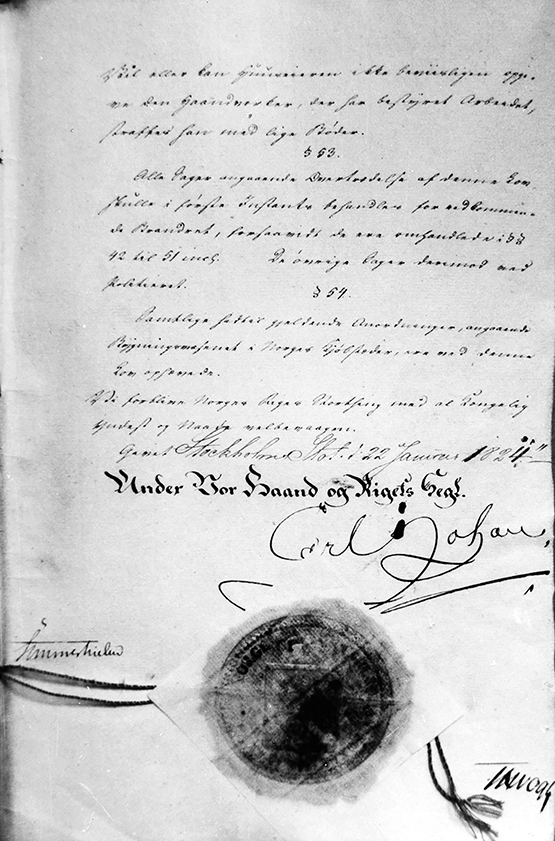 Vil eller kan Huuseieren ikke beviisligen opgi-
ve den Haandverker, der har bestyret Arbeidet,
straffes han med lige Bøder.
§ 53.
Alle Sager angaaende Overtrædelse af denne Lov
skulle i første Instants behandles for vedkommen-
de Brandret, forsaavidt de ere omhandlede i §§
42 til 51 incl. De øvrige Sager derimod ved
Politieret.
§ 54.
Samtlige hidtil gjeldende Anordninger, angaaende
Bygningsvæsenet i Norges Kjøbsteder, ere ved denne
Lov ophævede.
Vi forblive Norges Riges Storthing med al Kongelig
Yndest og Naade velbevaagen.
Givet Stockholms Slot i 22 Januar 1824
Under Vor Haand og Rigets Segl.
Carl Johan